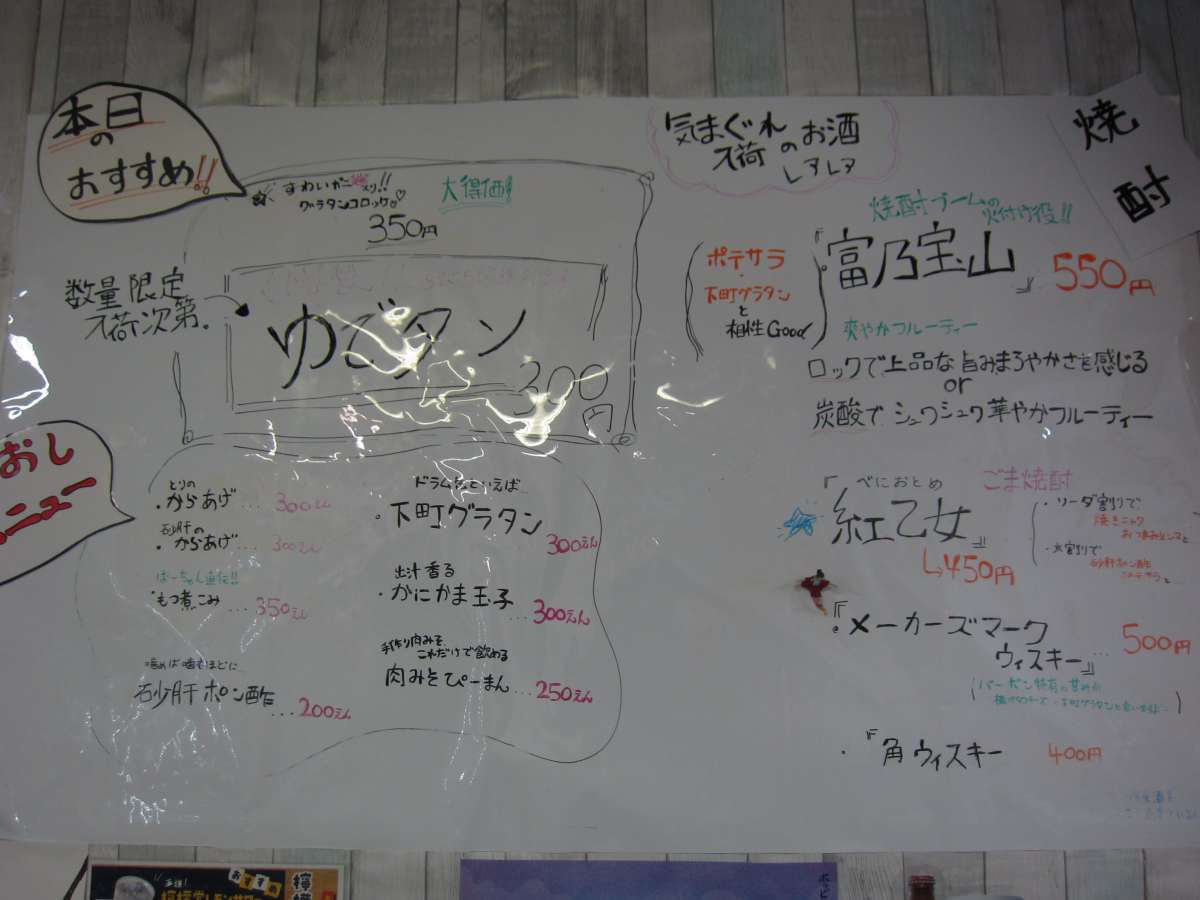 本日の
おすすめ!!
すわいガニ入り!!
グラタンコロッケ♡
350円
大得価!
数量限定
入荷次第。
ゆでタン
300円
おし
ニュー
とりの
・からあげ...300えん
砂肝の
・からあげ...300えん
ばーちゃん直伝!!
・もつ煮こみ...350えん
噛めば噛むほどに
砂肝ポン酢...200えん
ドラム缶といえば
・下町グラタン
300えん
出汁香る
・かにかま玉子...300えん
手作り肉みそ
これだけで飲める
肉みそぴーまん...250えん
気まぐれ
入荷のお酒
レアレア
焼酎
焼酎ブームの
火付け役!!
『富乃宝山』
550円
ポテサラ
・
下町グラタン
と
相性Good
爽やかフルーティー
ロックで上品な旨みまろやかさを感じる
or
炭酸でシュワシュワ華やかフルーティー
べにおとめ
『紅乙女』
ごま焼酎
↳450円
・ソーダ割りで
・水割りで
砂肝ポン酢
ポテサラと
・『メーカーズマーク
ウィスキー』...500円
・『角ウィスキー
400円
おすすめ